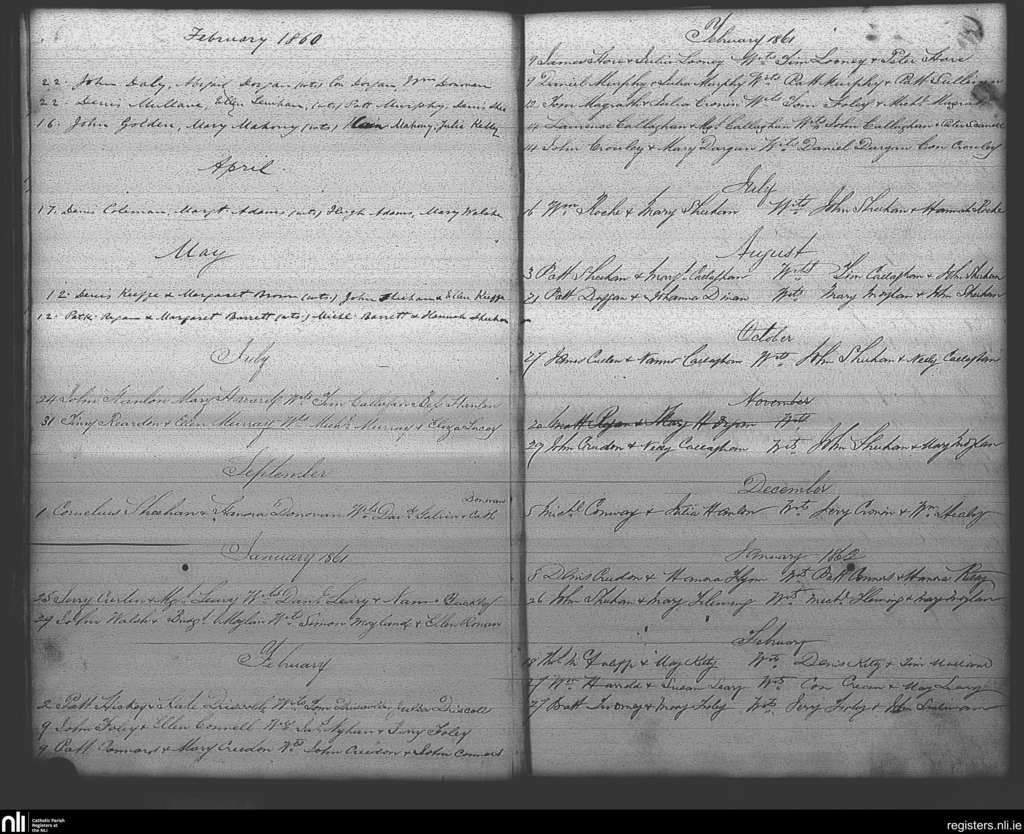 February 1860
22. John Daly, Dorgan (wts) Con Dorgan, Wm Donovan
22. Denis Mullane, Ellen Linehan, (wts) Patt Murphy, Denis
16. John Golden, Mary Mahony (wts) Mahony, Julia Kelly
April
17. Denis Coleman, Margt Adams (wts) Hugh Adams, Mary Walshe
May
12. Denis Keeffe & Margaret Brown (wts) John Shehan & Ellen Keeffe
12. Patk Ryan & Margaret Barrett (wts) Michl Barrett & Hannah Shehan
July
24 John Hanlon Mary Wts Tim Callaghan Hanlon
31 Timy Reardon & Ellen Murray Wts Michl Murray & Eliza Lucey
September
Donovan
1 Cornelius Sheehan & Honora Donovan Wts Cath
January 1861
25 Jerry & Mgt Leary Wts Danl Leary & Buckley
29 John Walsh & Bridgt Moylan Wts Simon Moylan & Ellen
February
2 Patt Hickey & Kate Driscoll Wts Tom Driscoll Driscoll
9 John Foley & Ellen Connell Wts Jas Nyhan & Jerry Foley
9 Patt Connors & Mary Creedon Wts John Creedon & John Connors
February 1861
9 James Hore & Julia Looney Wts Tim Looney & Peter Hore
9 Daniel Murphy & Julia Murphy Wts Patt Murphy & Patt Sullivan
12 Tim Magrath & Julia Cronin Wts Tom Foley & Michl Magrath
14 Laurence Callaghan & Mgt Callaghan Wts John Callaghan &
14 John Crowley & Mary Dargan Wts Daniel Dargan Con Crowley
July
6 Wm Roche & Mary Sheehan Wts John Sheehan & Hannah Roche
August
3 Patt Sheehan & Margt Callaghan Wts Tim Callaghan & John Sheehan
21 Patt & Johanna Dinan Wts Mary Moylan & John Sheehan
October
27 James & Callaghan Wts John Sheehan & Callaghan
November
20 Ryan & Mary Wts
27 John Creedon & Callaghan Wts John Sheehan & Mary Moylan
December
5 Michl Conway & Julia Hanlon Wts Jerry Cronin & Wm Healy
January 1862
5 Denis Creedon & Honora Flynn Wts Patt Connors & Hanna
26 John Sheehan & Mary Fleming Wts Michl Fleming & Mary Moylan
February
18 & May Kelly Wts Denis Kelly & Tim
27 Wm Harrold & Susan Leary Wts Con & May Leary
27 Patt Twomey & Mary Foley Wts Jery Foley & John Sullivan
nli
Catholic Parish
Registers at
the NLI
registers.nli.ie